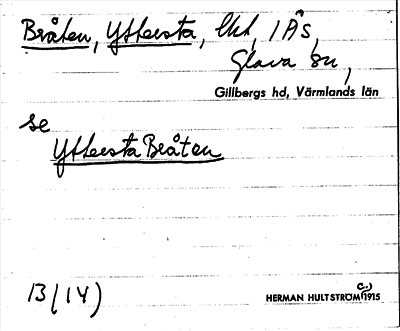 Bråten, Yttersta, lht, i Ås,
Glava sn,
Gillbergs hd, Värmlands län
se
Ytersta Bråten
13/14)
HERMAN HULTSTRÖM 1915